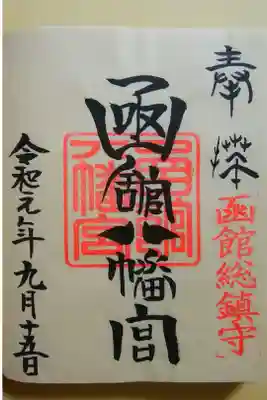 奉拝
函館総鎮守
函館八幡宮
令和元年九月十五日